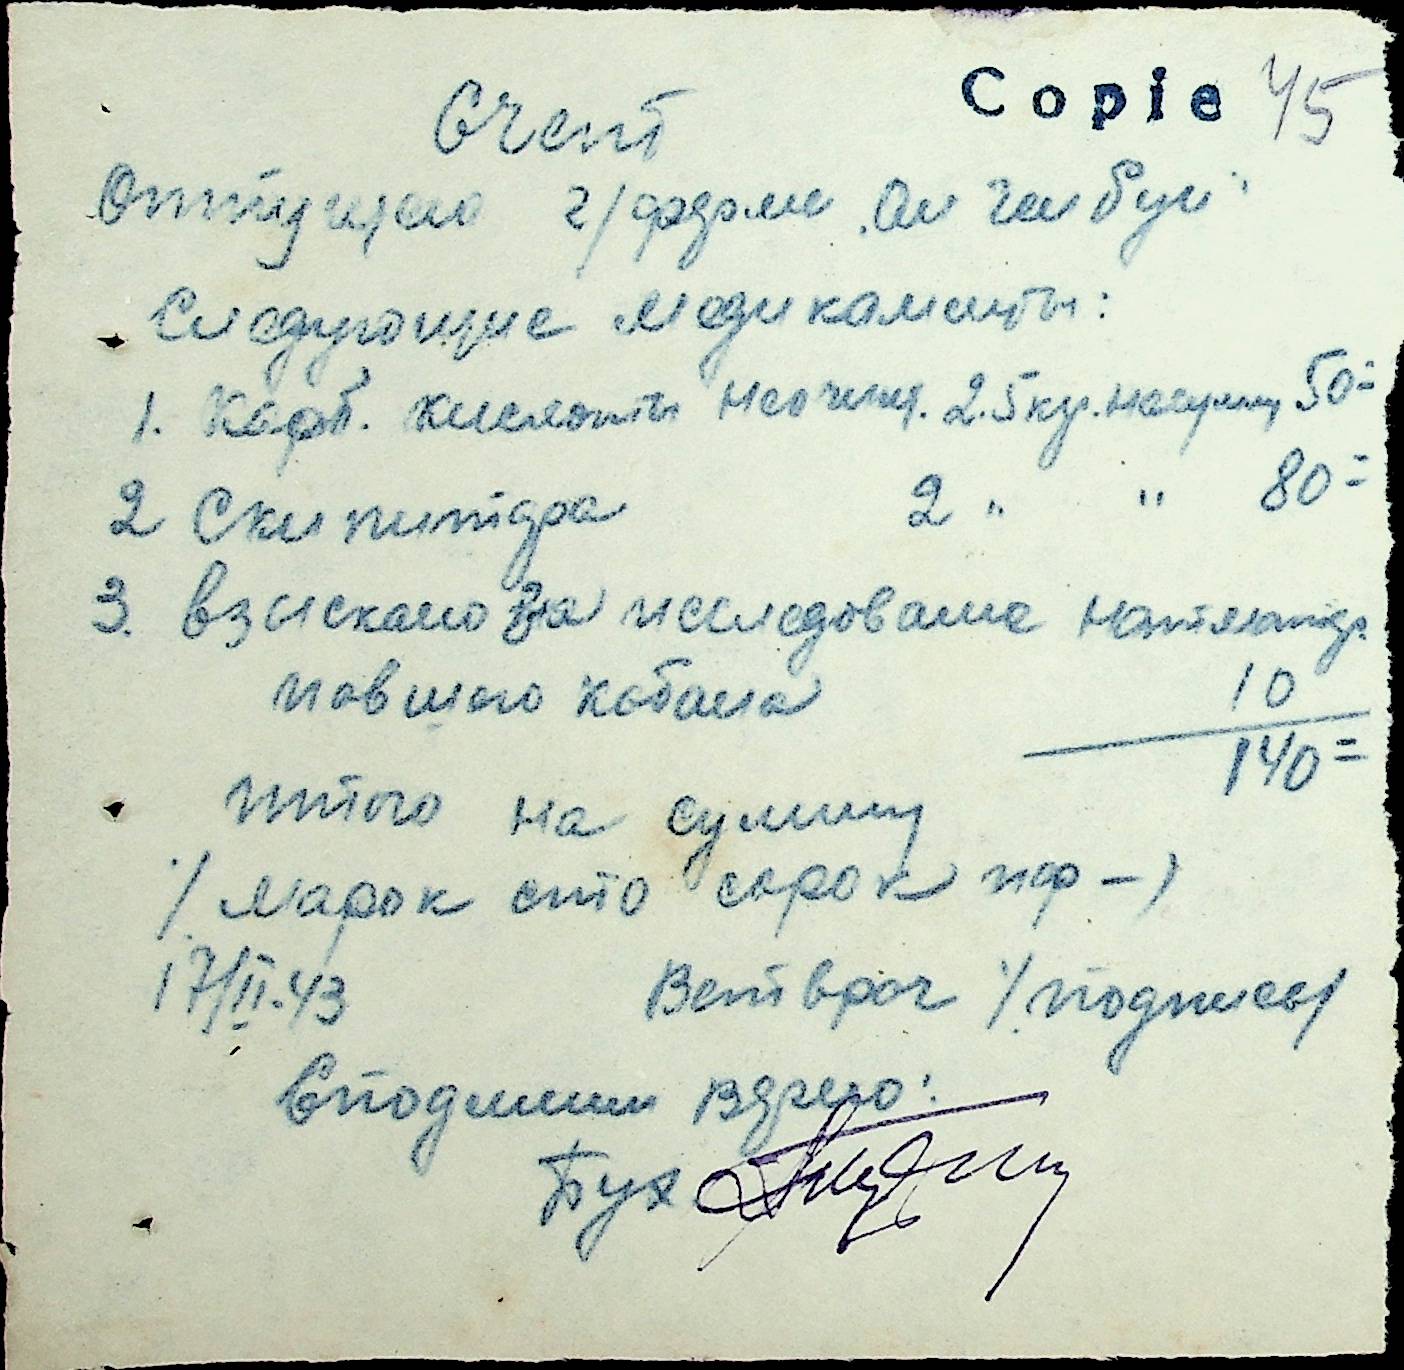 Copie 45
Счет
Отпущено г/ферме „Ой Чамбул"
Следующие медикаменты:
1. Карб. кислоты неочищ. 2.5 кгр. на сумму 50=
2 Скипитдра 2 " " 80=
3. взыскано за исследование
павшого кабана 10
140=
итого на сумму
/. марок сто сорок пф –)
17/II.43 Ветврач /.подпись/
С подлинным верно:
Бух